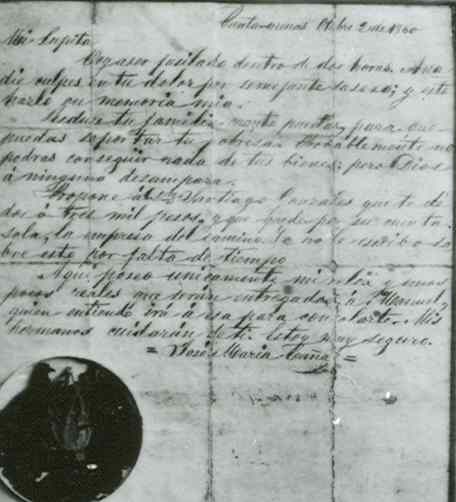 Punta-arenas Otbre 2 de 1860
Mi Lupita
Voy a ser fusilado dentro de dos horas. A na
die culpes en tu dolor por semejante suceso; y esto
hazlo en memoria mia.
Reduce tu familia cuanto puedas, para que
puedas soportar tu pobresa. Probablemente no
podras conseguir nada de tus bienes; pero Dios
á ninguno desampara.
Propone á Santiago Gonzales que te dé
dos ó tres mil pesos, y que quede por su cuenta
sola, la empresa del camino. Yo no le escribo so
bre esto por falta de tiempo
Aqui poseo unicamente mi reloj y unos
pocos reales que serán entregados á Manuel,
quien entiendo irá á esa para consolarte. Mis
hermanos cuidarán de ti. Estoy muy seguro.
= José Maria Cañas =